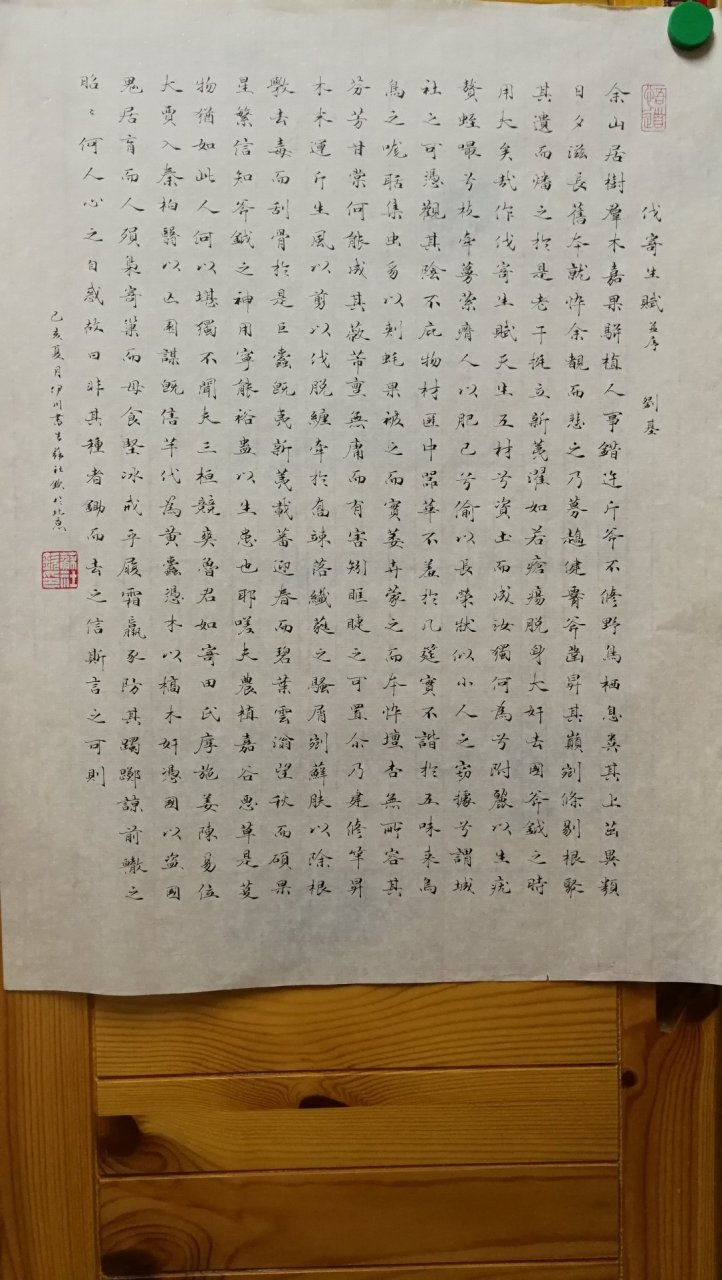 伐寄生賦 並序 劉基
余山居樹群木嘉果駢植人事錯迕斤斧不修野鳥栖息糞其上茁異類
日夕滋長舊本就悴余覩而悲之乃募趫健腰斧鑿昇其巔剜條剔根聚
其遺而燔之於是老干挺立新荑濯如若瘡瘍脫身大奸去國斧鉞之時
用大矣哉作伐寄生賦天生五材兮資土而成汝獨何為兮附麗以生疣
贅蛭嘬兮枝牽蔓縈瘠人以肥己兮偷以長榮狀似小人之竊據兮謂城
社之可憑觀其陰不庇物材匪中器華不羞於几筵實不諧於五味來鳥
鳥之咙聒集虫豸以刺蚝果被之而實萎卉蒙之而本悴壇杏無所容其
芬芳甘棠何能成其蔽芾翦無庸而有害矧眶睫之可置尒乃建修竿昇
木末運斤生風以剪以伐脫纏牽於喬竦落纖蕤之騷屑剜蘚膚以除根
斁去毒而刮骨於是巨蠹既夷新荑載蕃迎春而碧葉雲滃望秋而碩果
星繁信知斧鉞之神用寧能裕蠱以生患也耶嗟夫農植嘉谷惡草是芟
物猶如此人何以堪獨不聞夫三桓競爽魯君如寄田氏厚施姜陳易位
大賈入秦柏翳以亡園謀既售芈代為黃蠹憑木以槁木奸憑國以盜國
鬼居肓而人殞梟寄巢而母食堅冰戒乎履霜羸豕防其躑躅諒前轍之
昭〻何人心之自惑故曰非其種者鋤而去之信斯言之可則
己亥夏月伊川書生 社 於北京